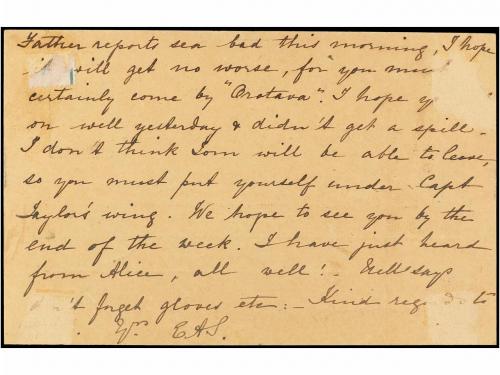 Father reports sea bad this morning, I hope
will get no worse, for you
certainly come by "Orotava". I hope
on well yesterday & didn't get a spill.
I don't think Tom will be able to leave,
so you must put yourself under Capt
Taylor's wing. We hope to see you by the
end of the week. I have just heard
from Alice, all well! - Nell says
forget gloves etc: - Kind to
Yrs EAS.